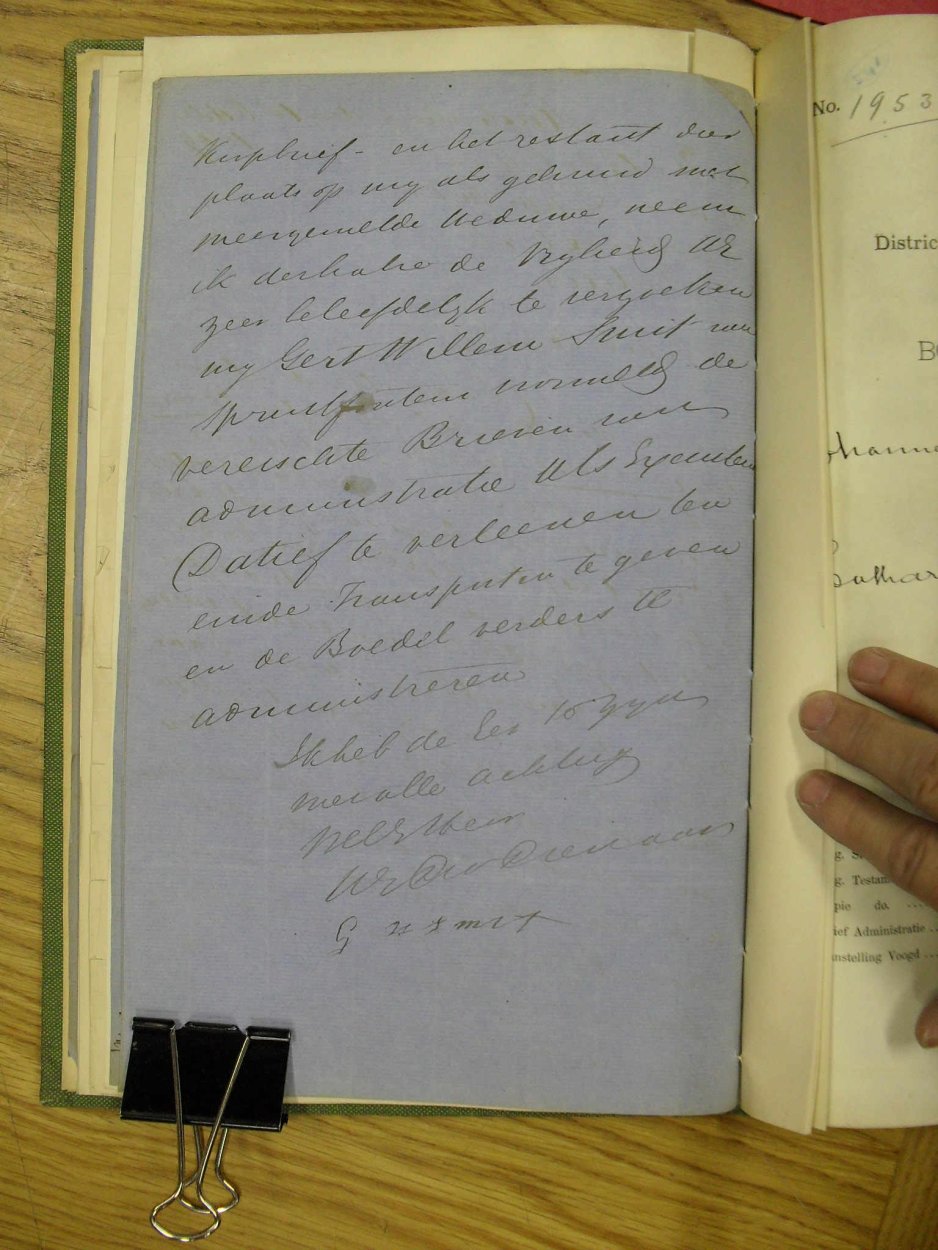 Koopbrief - en het restant dier
plaats op my als gehuwd met
meergemelde Weduwe, neem
ik derhalve de vryheid UE
zeer beleefdelyk te verzoeken
my Gert Willem Smit van
Spruitfontein voormeld de
vereischte Brieven van
administratie Als Executeur
Datief te verleenen ten
einde Transporten te geven
en de Boedel verders te
administreren
Ik heb de Eer te zyn
met alle achting
WelE Heer
UE Dw Dienaar
G W Smit
No. 1953
Distric
B
g. Testam
pie do. ...
ief Administratie ..
nstelling Voogd ...